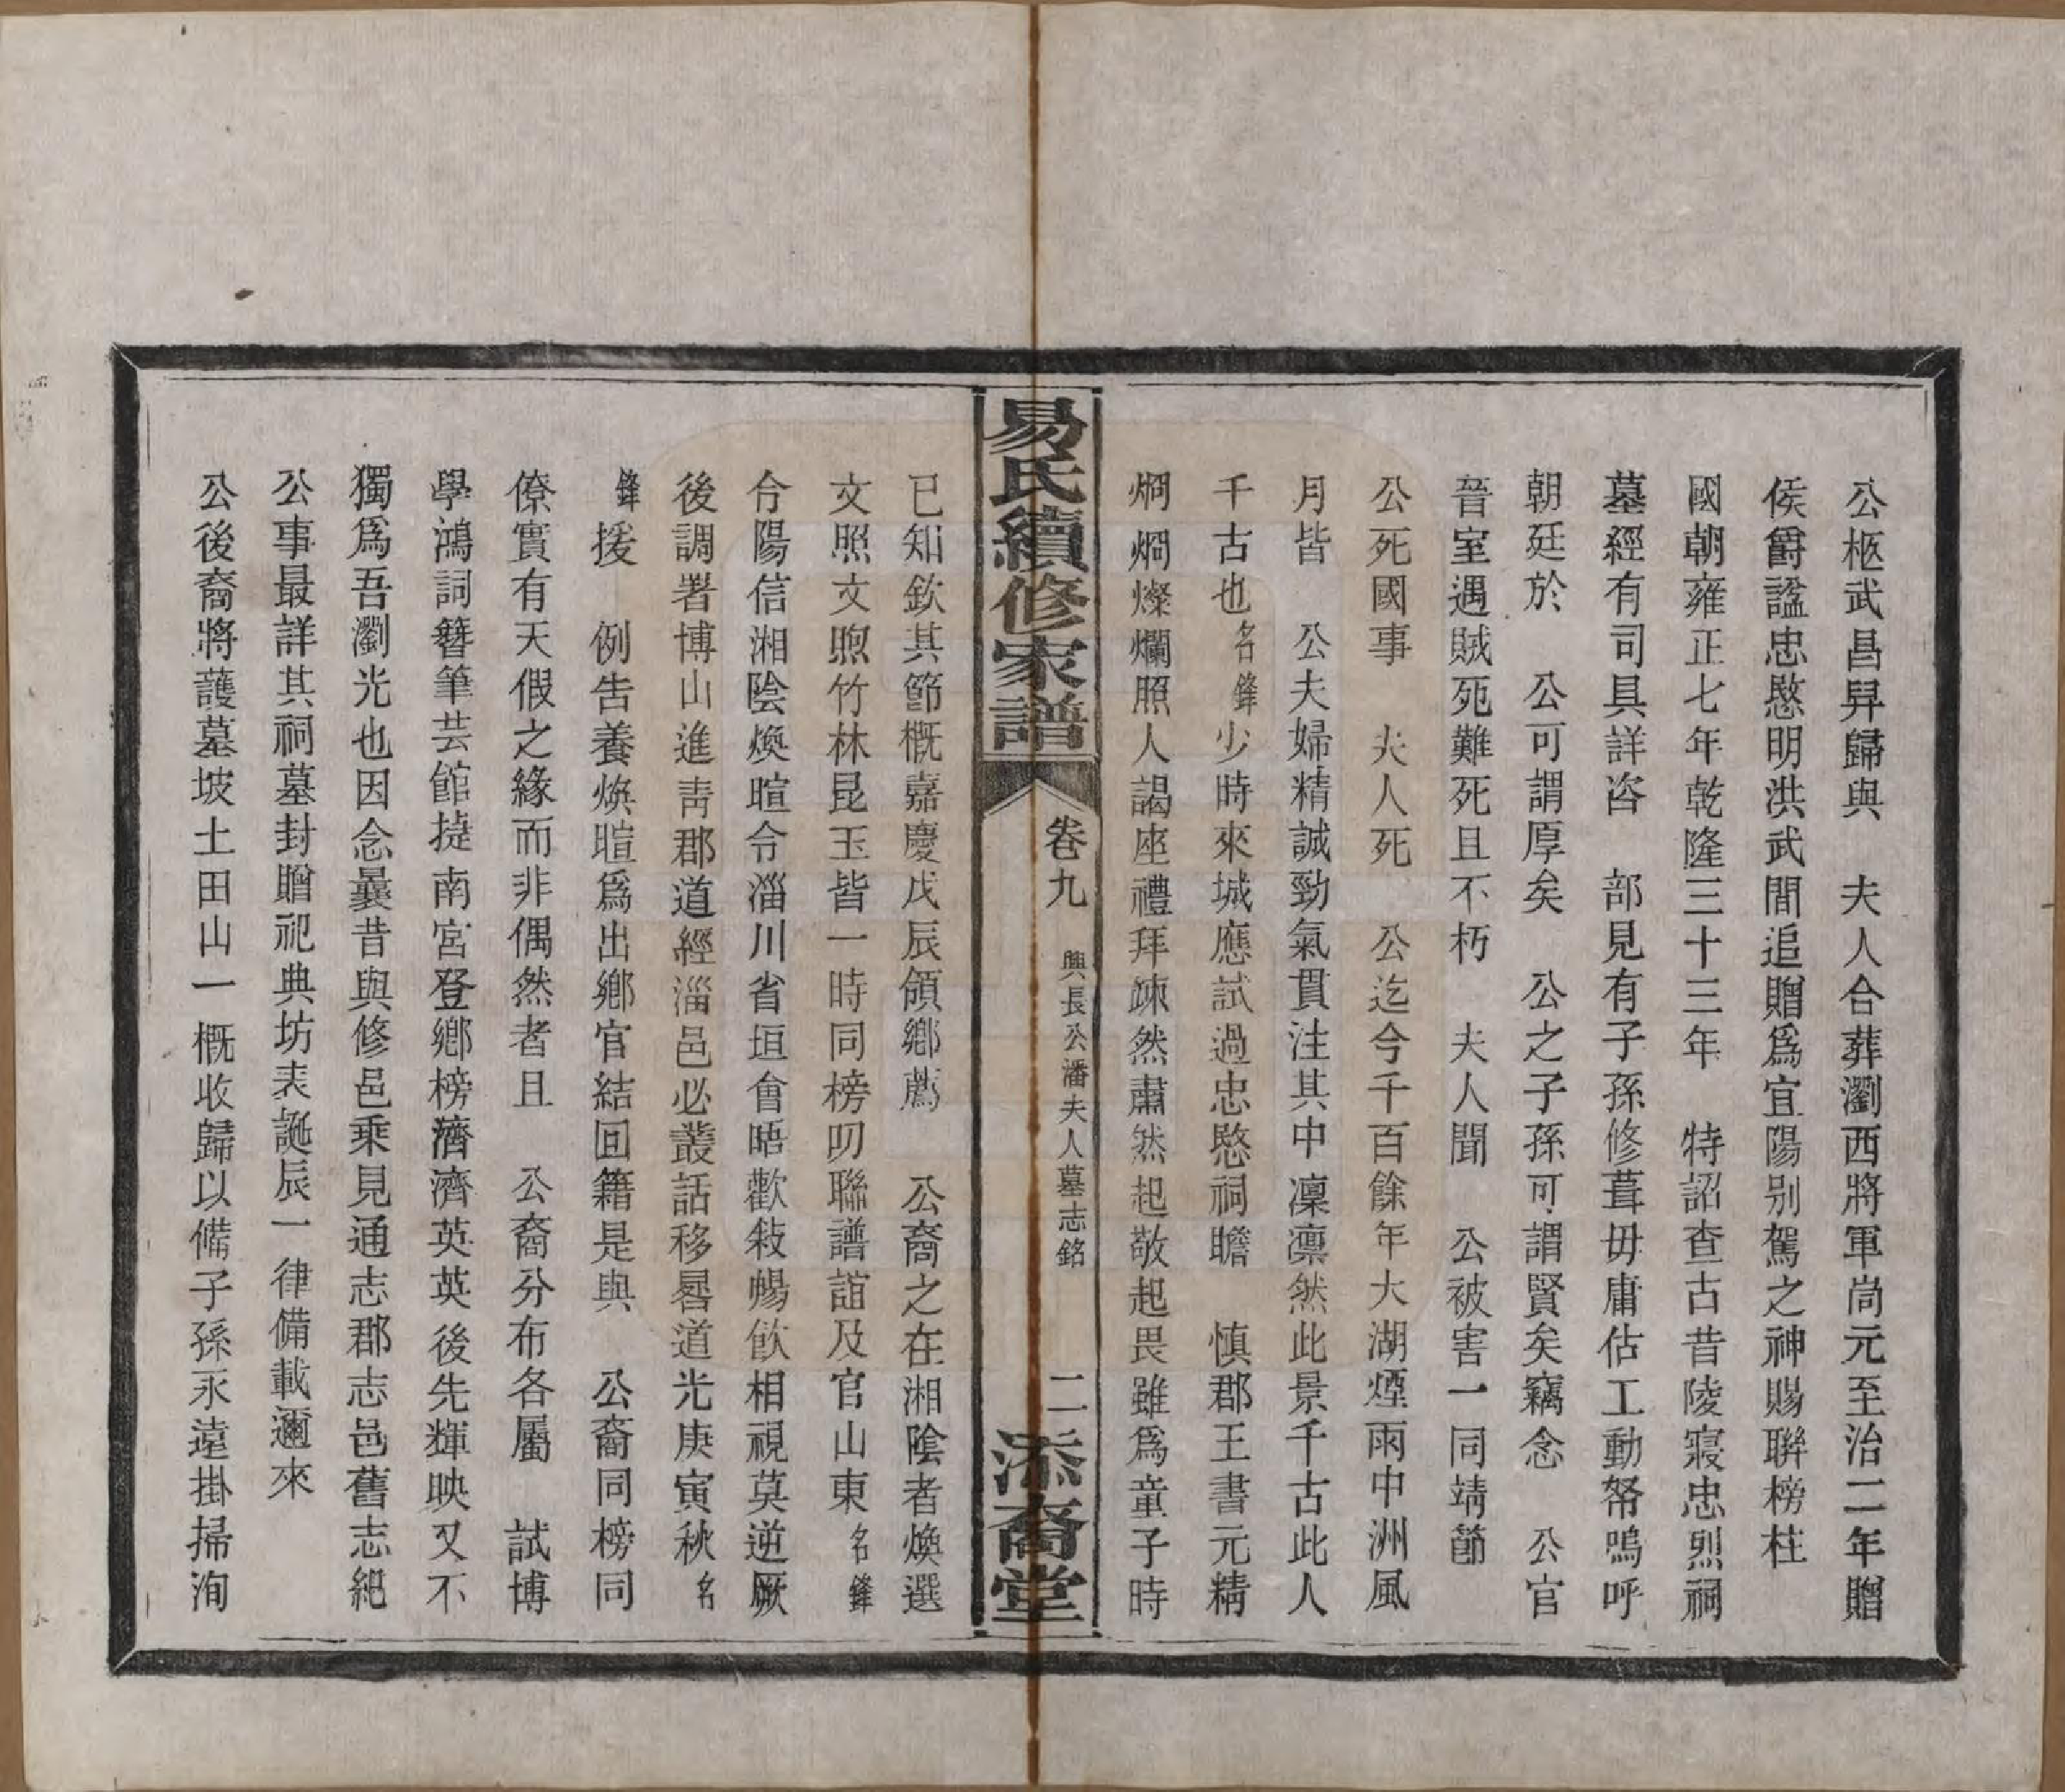 公柩武昌舁歸與　夫人合葬瀏西將軍尙元至治二年贈
侯爵諡忠愍明洪武間追贈爲宜陽別駕之神賜聯榜柱
國朝雍正七年乾隆三十三年　特詔查古昔陵寢忠烈祠
墓經有司具詳咨　部見有子孫修葺毋庸估工動帑嗚呼
朝廷於　公可謂厚矣　公之子孫可謂賢矣竊念　公官
晉室遇賊死難死且不朽　夫人聞　公被害一同靖節
公死國事　夫人死　公迄今千百餘年大湖煙雨中洲風
月皆　公夫婦精誠勁氣貫注其中凜凜然此景千古此人
千古也名鋒少時來城應試過忠愍祠瞻　慎郡王書元精
炯炯燦爛照人謁座禮拜竦然肅然起敬起畏雖爲童子時
易氏續修家譜
卷九
興長公潘夫人墓志銘
二
添裔堂
已知欽其節概嘉慶戊辰領鄉薦　公裔之在湘陰者煥選
文照文煦竹林昆玉皆一時同榜叨聯譜誼及官山東名鋒
令陽信湘陰煥暄令淄川省垣會晤歡敍暢飲相視莫逆厥
後調署博山進靑郡道經淄邑必叢話移晷道光庚寅秋名
鋒援　例告養煥暄爲出鄉官結回籍是與　公裔同榜同
僚實有天假之緣而非偶然者且　公裔分布各屬　試博
學鴻詞簪筆芸館捷南宮登鄉榜濟濟英英後先輝映又不
獨爲吾瀏光也因念曩昔與修邑乘見通志郡志邑舊志紀
公事最詳其祠墓封贈祀典坊表誕辰一律備載邇來
公後裔將護墓坡土田山一概收歸以備子孫永遠掛掃洵